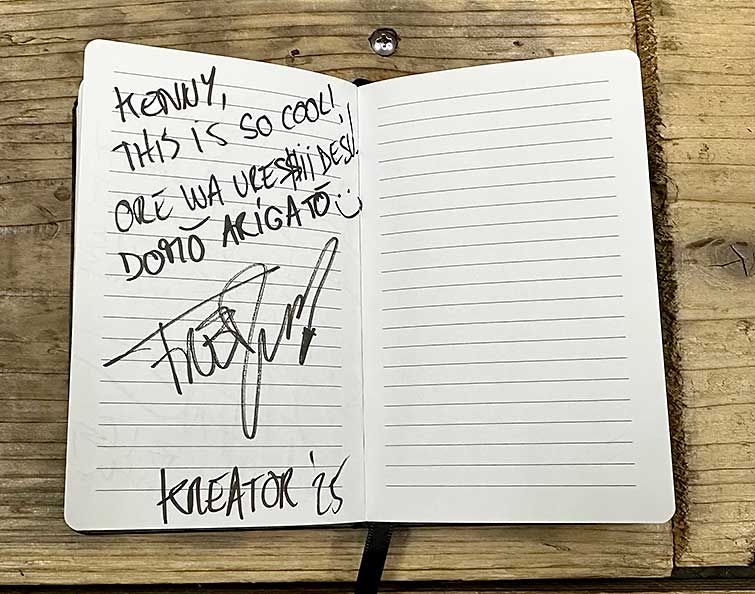 KENNY,
THIS IS SO COOL!,
ORE WA URESHII DESU!
DOMŌ ARIGATŌ
KREATOR '25